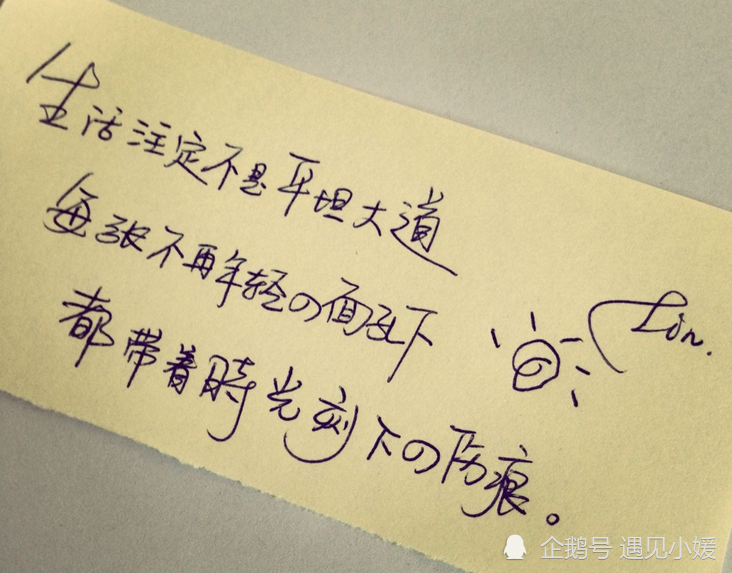 生活注定不是平坦大道
每张不再年轻の面孔下
都带着時光刻下の伤痕。
Lin.
企鹅号 遇见小媛